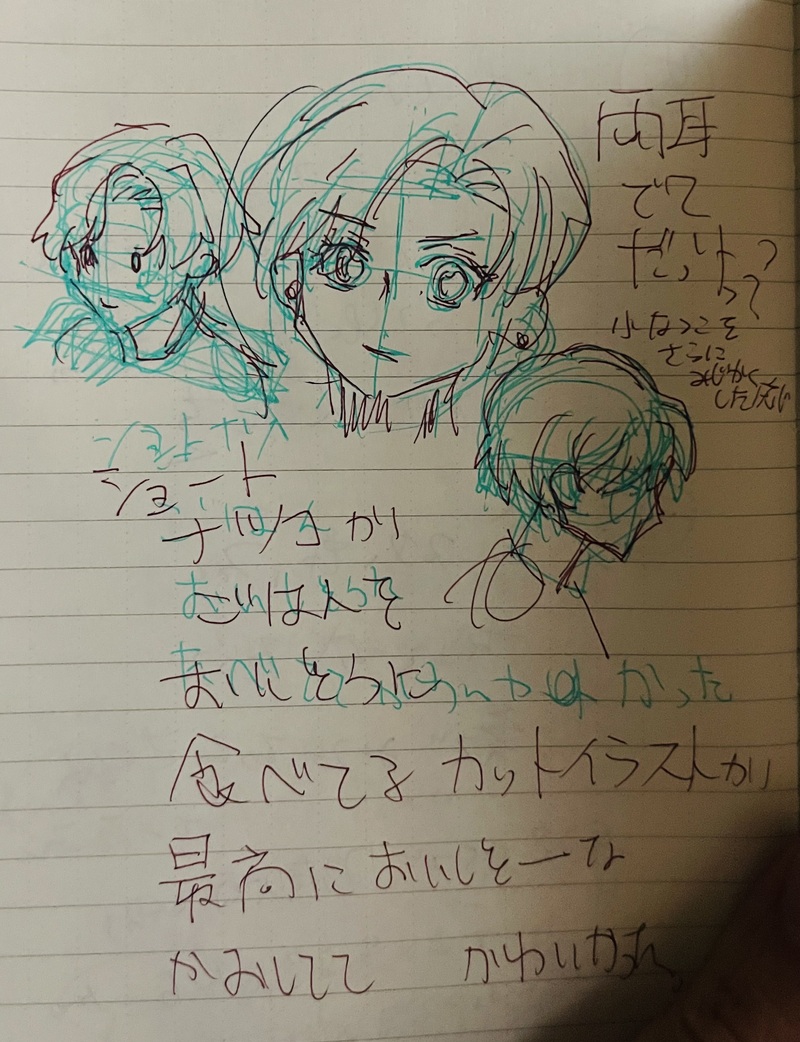 両耳
でて
だっけ??
小なつこを
さらに
みじかく
した感じ
ショート
ごはんを
おいしそうに
かった
食べてる カットイラストが
最高においしそーな
かおしてて かわいかった